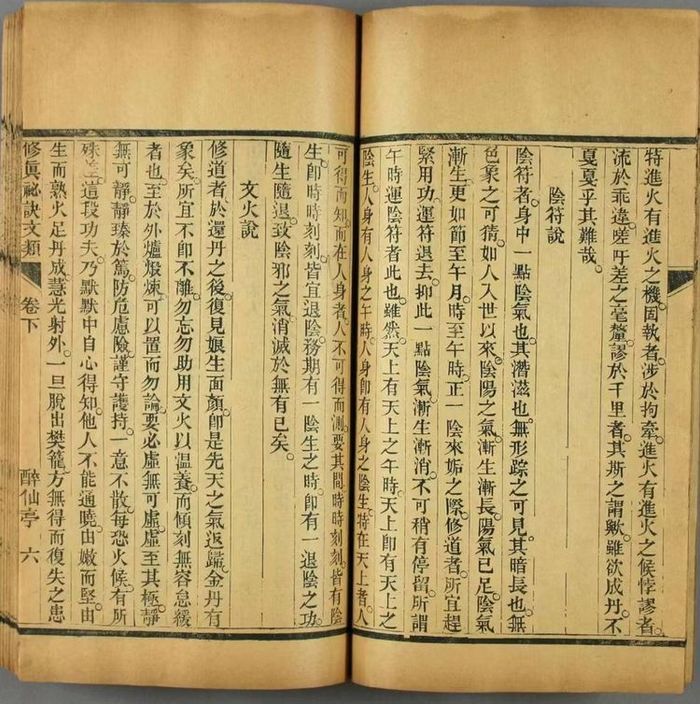 特進火有進火之機。固執者涉於拘牽。進火有進火之候。悖謬者
流於乖違。嗟吁差之毫釐。謬於千里者。其斯之謂歟。雖欲成丹。不
戛戛乎其難哉。
陰符說
陰符者。身中一點陰氣也。其潛滋也。無形踪之可見。其暗長也。無
色象之可猜。如人入世以來。陰陽之氣。漸生漸長。陽氣已足。陰氣
漸生。更如節至午月。時至午時。正一陰來姤之際。修道者。所宜趕
緊用功。運符退去。抑此一點陰氣。漸生漸消。不可稍有停留。所謂
午時運陰符者此也。雖然。天上有天上之午時。天上卽有天上之
陰生。人身有人身之午時。人身卽有人身之陰生。特在天上者。人
可得而知。而在人身者。人不可得而測。要其間時時刻刻。皆有陰
生。卽時時刻刻。皆宜退陰。務期有一陰生之時。卽有一退陰之功。
隨生隨退。致陰邪之氣。消滅於無有已矣。
文火說
修道者。於還丹之後。復見娘生面顏。卽是先天之氣返歸。金丹有
象矣。所宜不卽不離。勿忘勿助。用文火以溫養。而傾刻無容怠緩
者也。至於外爐煅煉。可以置而勿論。要必虛無可虛。虛至其極。靜
無可靜。靜臻於篤。防危慮險。謹守護持。一意不散。每恐火候。有所
殊。這段功夫。乃默默中自心得知。他人不能通曉。由嫩而堅。由
生而熟。火足丹成。慧光射外。一旦脫出樊籠。方無得而復失之患
修眞祕訣文類
卷下
醉仙亭
六